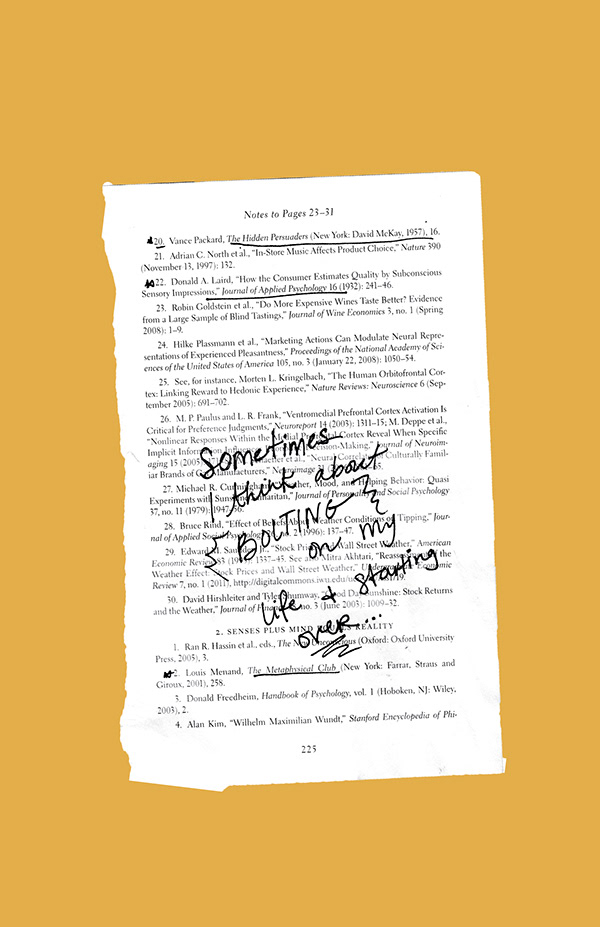 Notes to Pages 23–31
20. Vance Packard, The Hidden Persuaders (New York: David McKay, 1957), 16.
21. Adrian C. North et al., “In-Store Music Affects Product Choice,” Nature 390
(November 13, 1997): 132.
22. Donald A. Laird, “How the Consumer Estimates Quality by Subconscious
Sensory Impressions,” Journal of Applied Psychology 16 (1932): 241–46.
23. Robin Goldstein et al., “Do More Expensive Wines Taste Better? Evidence
from a Large Sample of Blind Tastings,” Journal of Wine Economics 3, no. 1 (Spring
2008): 1–9.
24. Hilke Plassmann et al., “Marketing Actions Can Modulate Neural Repre-
sentations of Experienced Pleasantness,” Proceedings of the National Academy of Sci-
ences of the United States of America 105, no. 3 (January 22, 2008): 1050–54.
25. See, for instance, Morten L. Kringelbach, “The Human Orbitofrontal Cor-
tex: Linking Reward to Hedonic Experience,” Nature Reviews: Neuroscience 6 (Sep-
tember 2005): 691–702.
26. M. P. Paulus and L. R. Frank, “Ventromedial Prefrontal Cortex Activation Is
Critical for Preference Judgments,” Neuroreport 14 (2003): 1311–15; M. Deppe et al.,
“Nonlinear Responses Within the Medial Cortex Reveal When Specific
Implicit Decision-Making,” Journal of Neuroim-
aging 15 (2005) et al., “Neural of Culturally Famil-
iar Brands of Manufacturers,” Neuroimage 31
27. Michael R. Cunningham, Mood, and Helping Behavior: Quasi
Experiments with Samaritan,” Journal of Personality and Social Psychology
37, no. 11 (1979): 1947–56.
28. Bruce Rind, “Effect of Beliefs About Weather Conditions on Tipping,” Jour-
nal of Applied Social no. 2 (1996): 137–47.
29. Edward M. Saunders Jr., “Stock Prices and Wall Street Weather,” American
Economic Review 83 1337–45. See also Mitra Akhtari, “Reassessment of the
Weather Effect: Stock Prices and Wall Street Weather,” Economic
Review 7, no. 1 (2011), http://digitalcommons.iwu.edu/
30. David Hirshleifer and Tyler Shumway, “Good Day Sunshine: Stock Returns
and the Weather,” Journal of no. 3 (June 2003): 1009–32.
Sometimes
I think about
BOLTING
on my
life + starting
over...
2. SENSES PLUS MIND EQUALS REALITY
1. Ran R. Hassin et al., eds., The New Unconscious (Oxford: Oxford University
Press, 2005), 3.
2. Louis Menand, The Metaphysical Club (New York: Farrar, Straus and
Giroux, 2001), 258.
3. Donald Freedheim, Handbook of Psychology, vol. 1 (Hoboken, NJ: Wiley,
2003), 2.
4. Alan Kim, “Wilhelm Maximilian Wundt,” Stanford Encyclopedia of Phi-
225